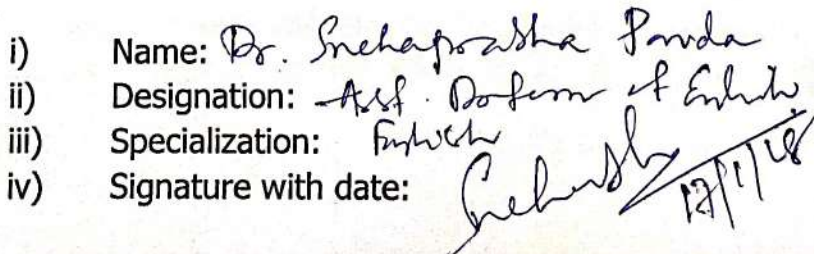 i) Name: Dr. Snehaprabha Panda
ii) Designation: Asst. Professor of English
iii) Specialization: English
iv) Signature with date: 17/1/18